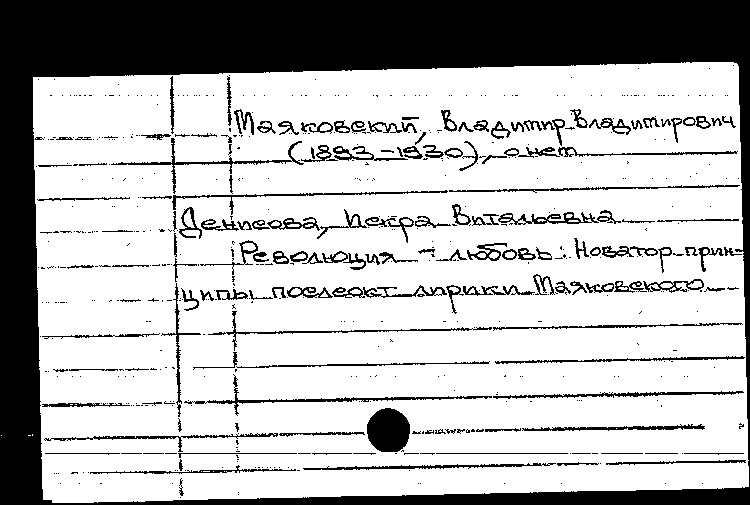 Маяковский, Владимир Владимирович
(1893-1930), о нем
Денисова, Искра Витальевна
Революция – любовь: Новатор прин-
ципы послеокт лирики Маяковского